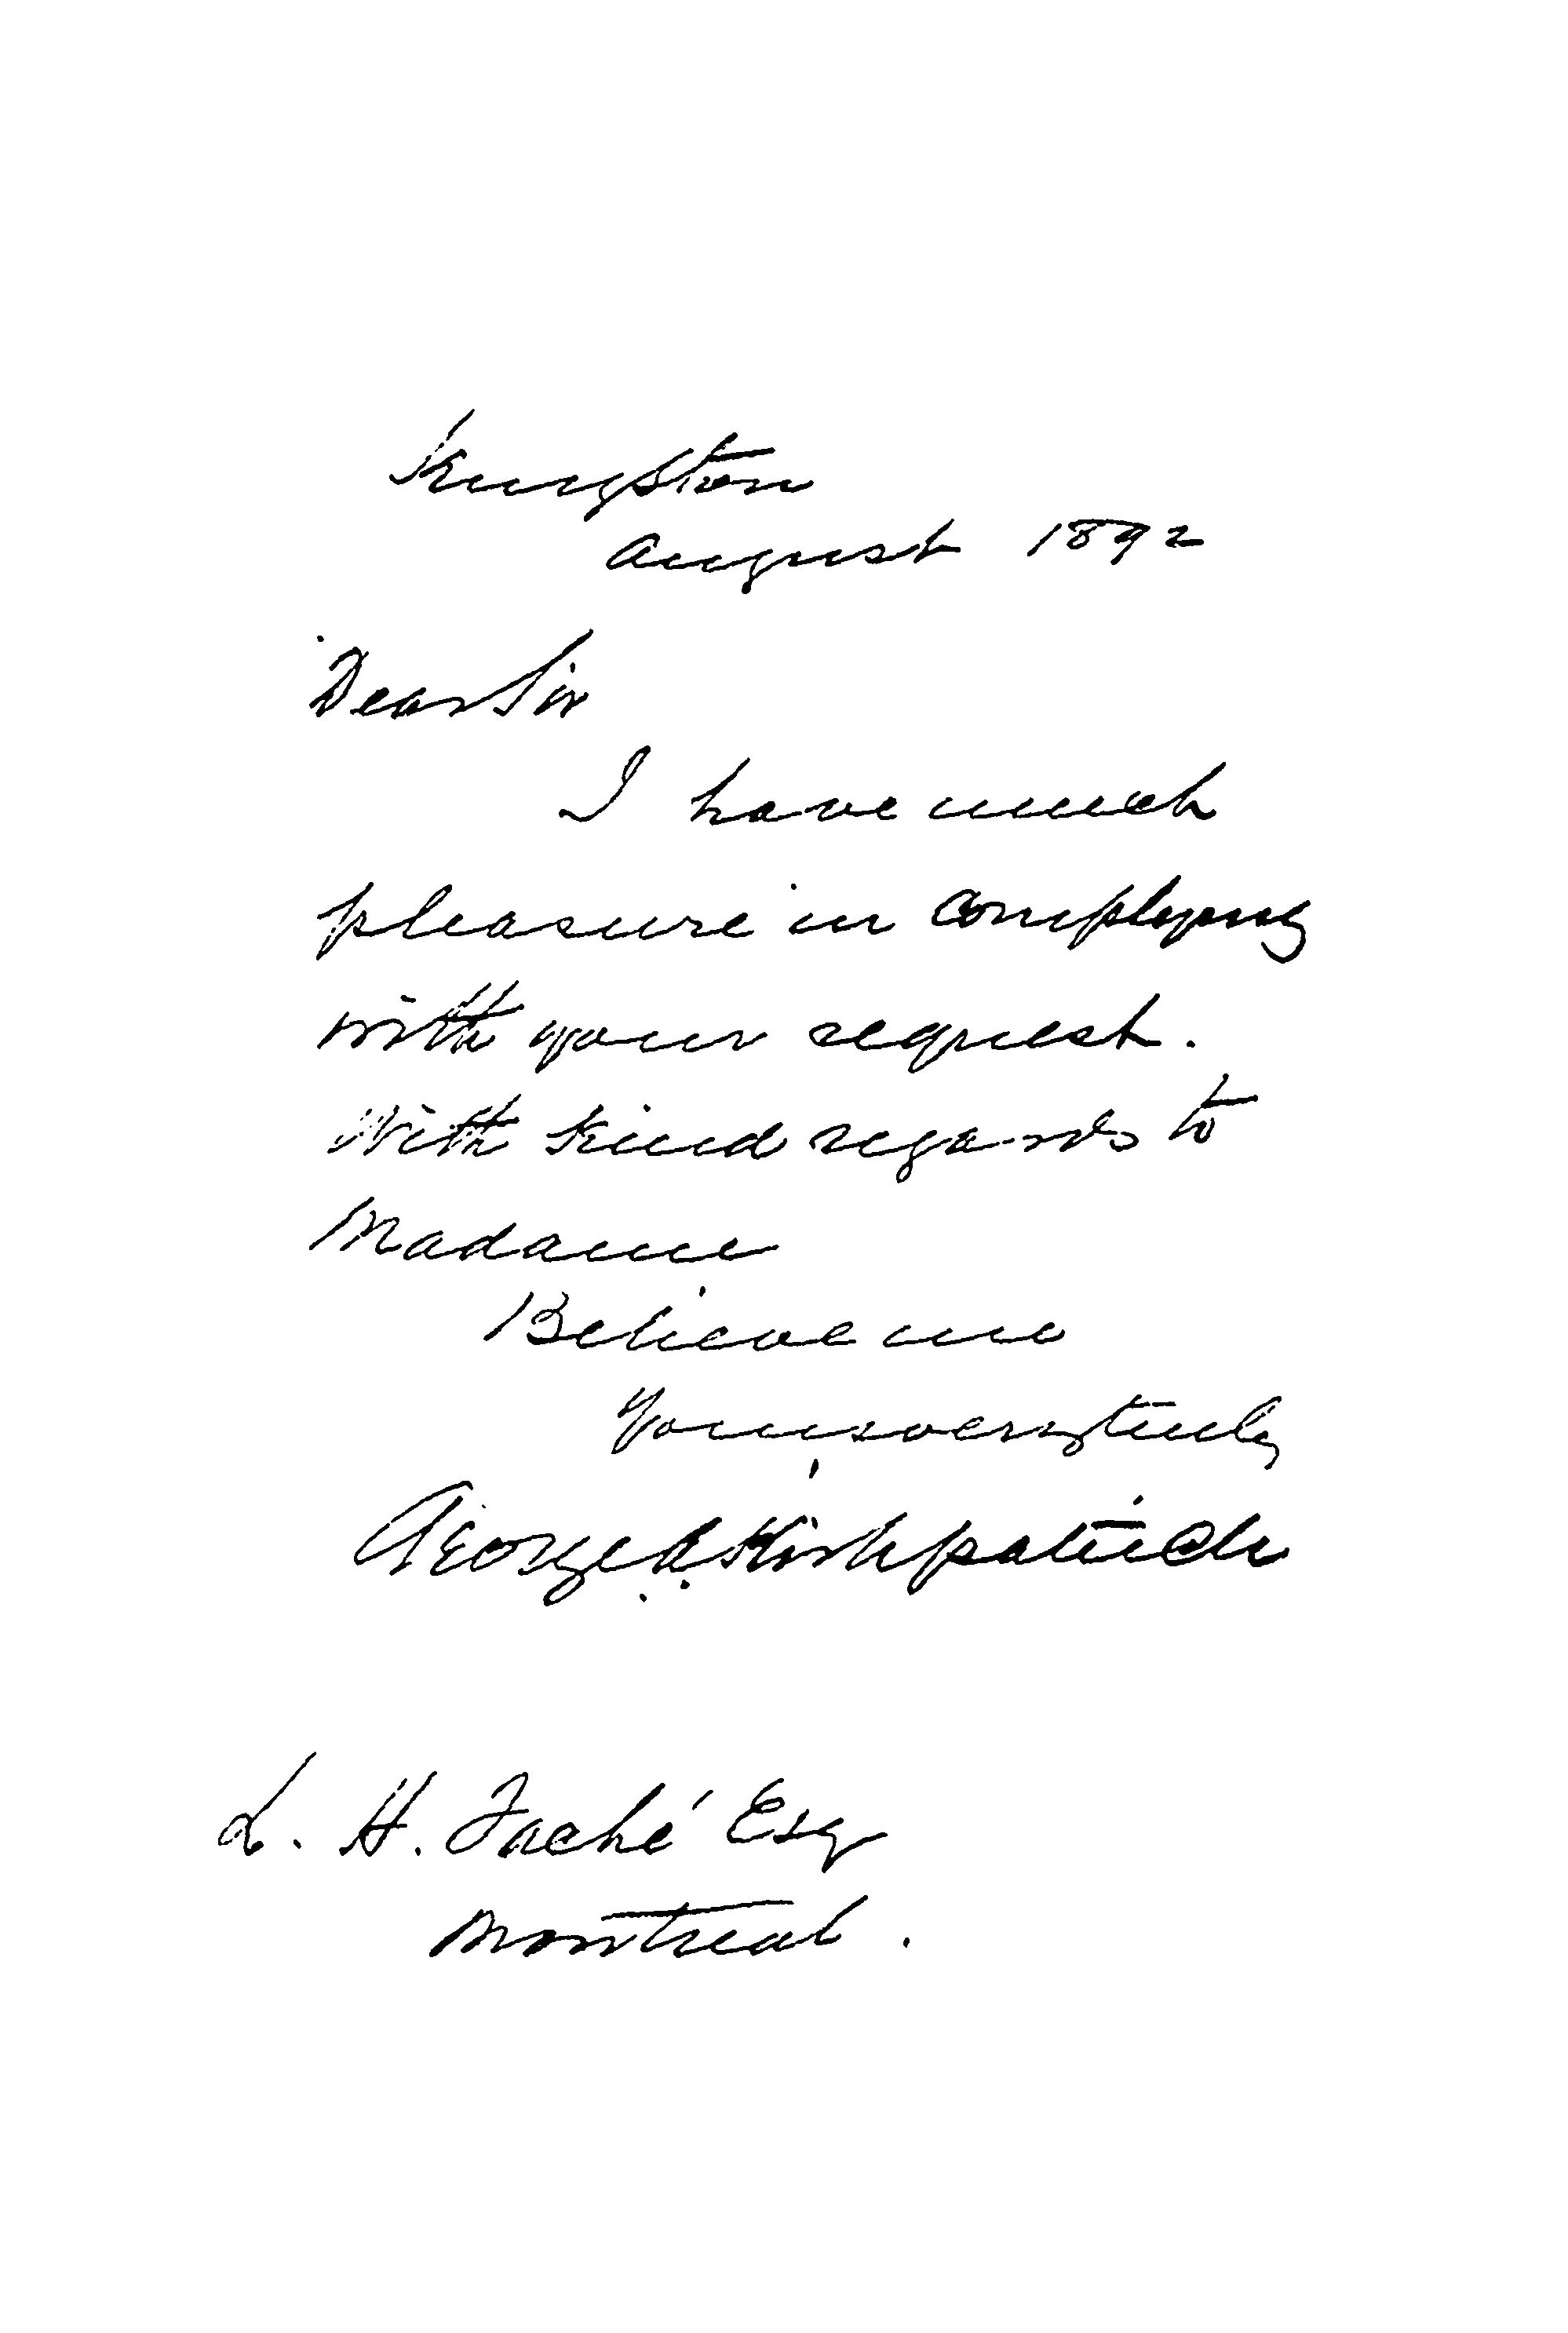 Kingston
August 1892
Dear Sir
I have much
pleasure in complying
with your request.
With kind regards to
Madame
Believe me
Yours very truly
George A. Kirkpatrick
L. H. Taché Esq
Montreal.